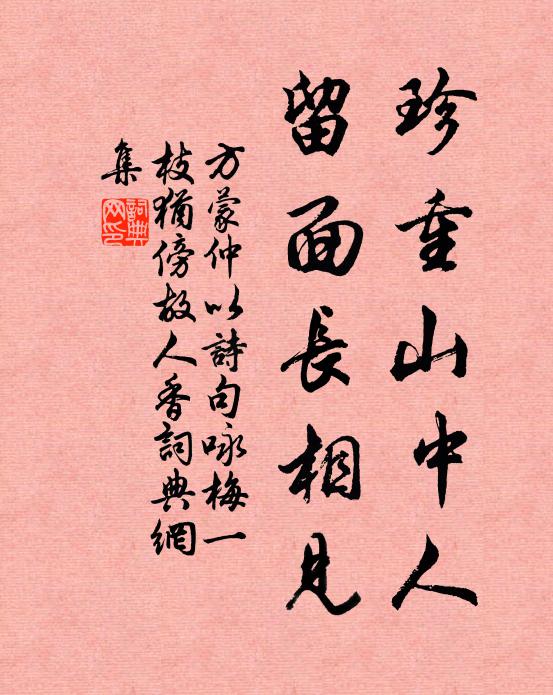 珍重山中人
留面長相見
方蒙仲以詩句咏梅一
枝猶傍故人香詞典網
集
詞典
网印